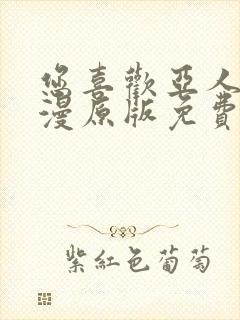 您喜歡亞人
漫原版免費
紫紅色葡萄